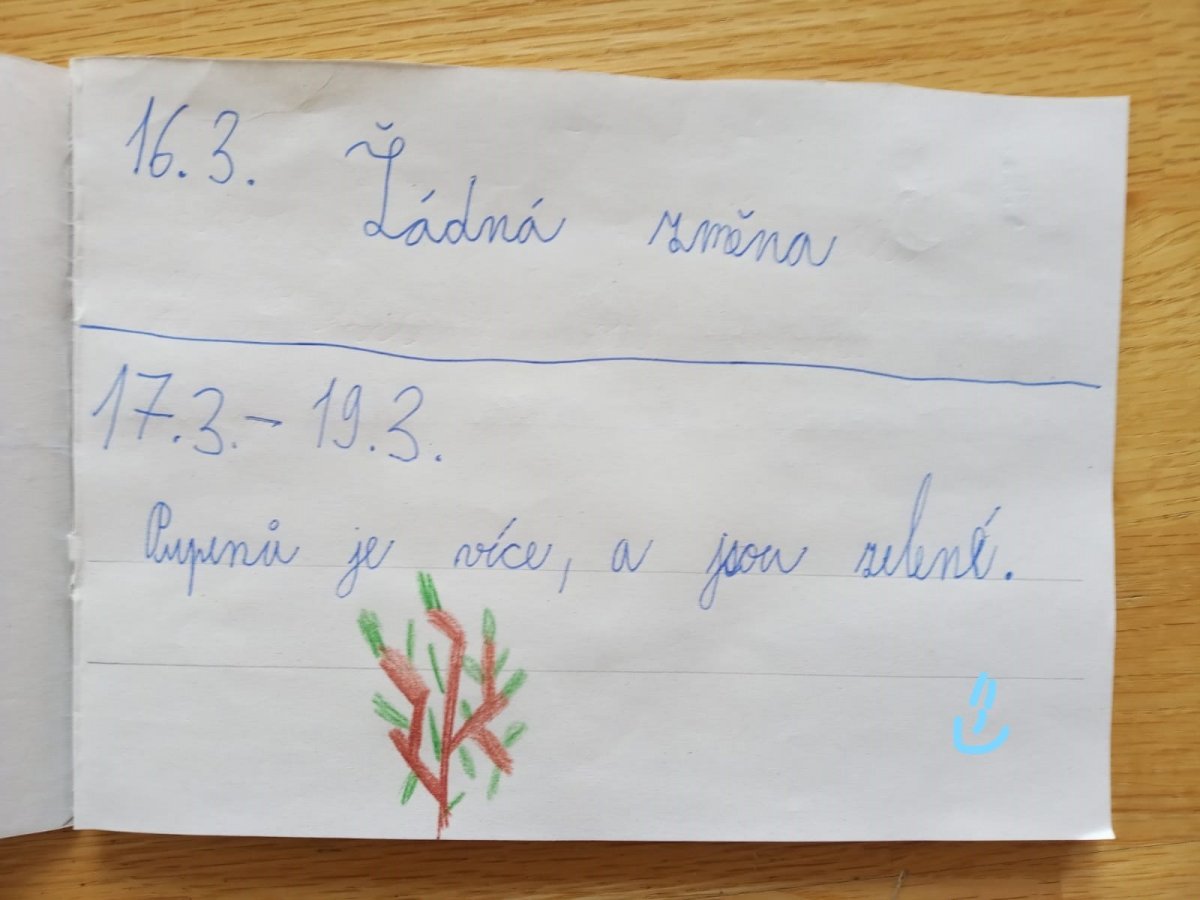 16.3. Žádná změna
17.3.- 19.3.
Pupenů je více, a jsou zelené.